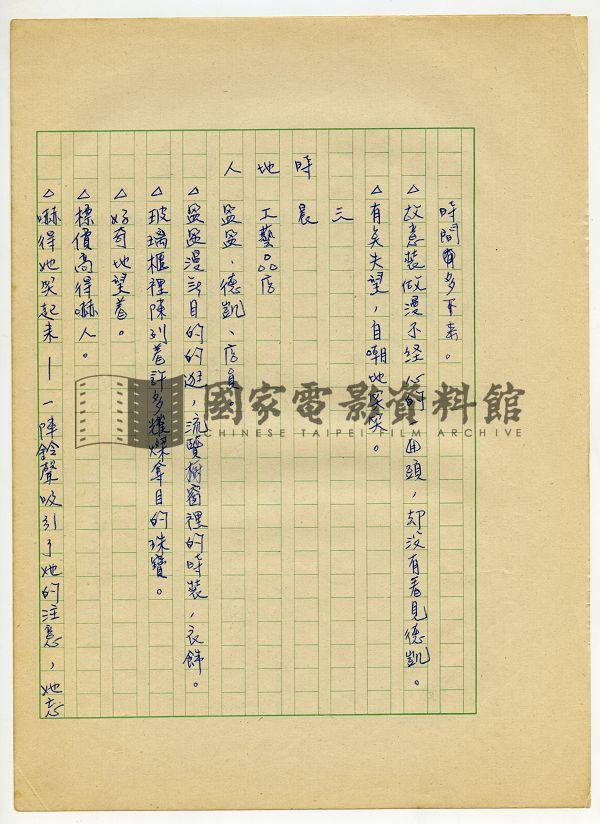 時間有多下来。
△故意裝做漫不经心的回頭，却没有看見德凱。
△有矣失望，自嘲地笑笑。
三
時 晨
地 工藝品店
人 盈盈、德凱、店員
△盈盈漫無目的的逛，流覽橱窗裡的時裝，衣飾。
△玻璃櫃裡陳列着許多耀燦奪目的珠寶。
△好奇地望着。
△標價高得嚇人。
△嚇得她笑起来—一陣鈴聲吸引了她的注意，她忘
國家電影資料館
CHINESE TAIPEI FILM ARCHIVE